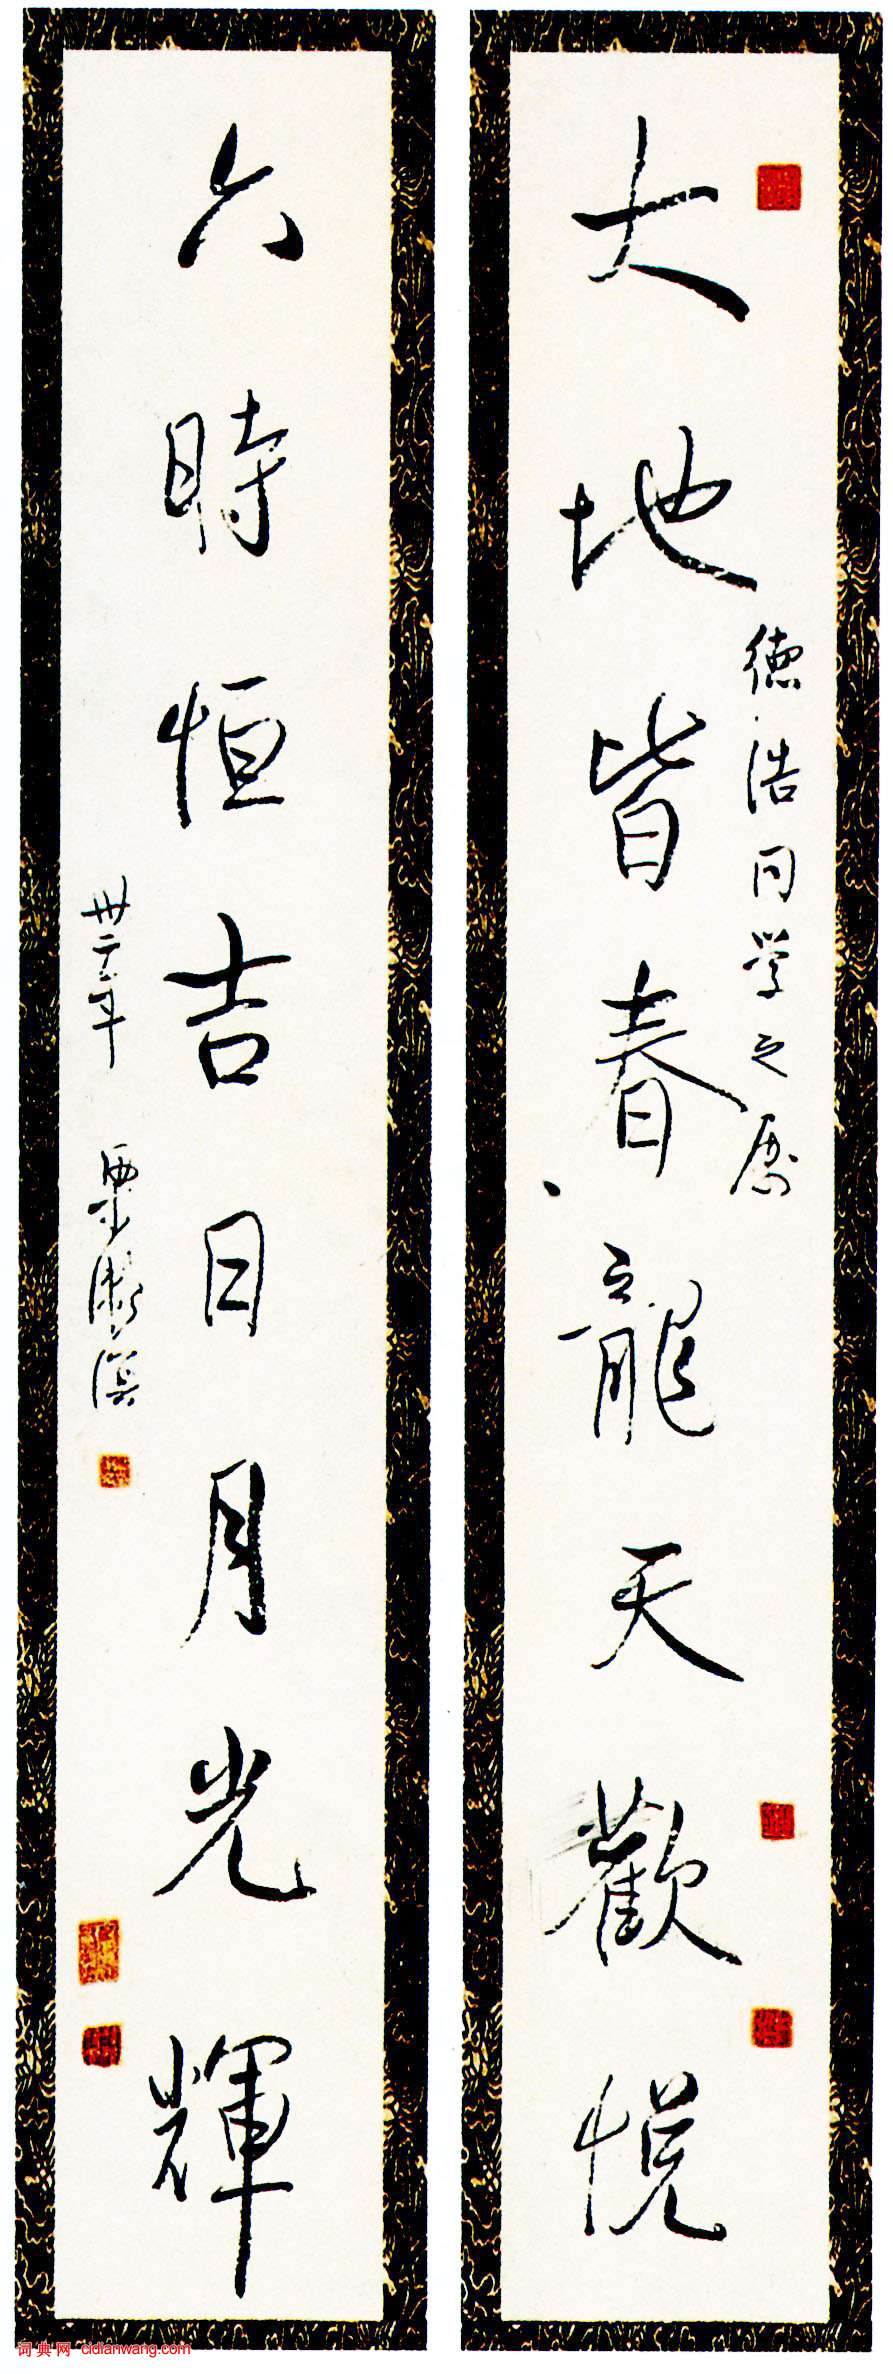 德浩同学之属
大地皆春龍天歡悦
六時恒吉日月光輝
卅二年 梁漱溟
词典网 cidianwang.com